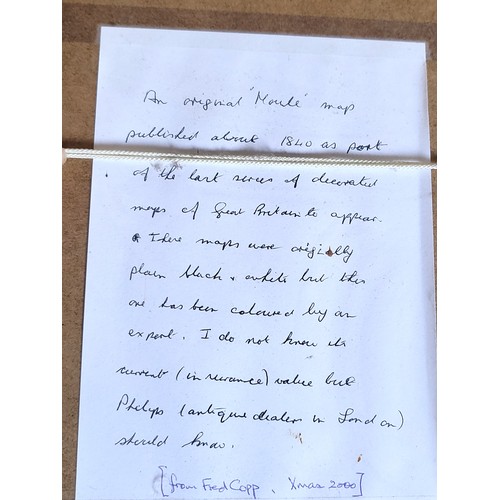 An original 'Moule' map
published about 1840 as part
of the last series of decorated
maps of Great Britain to appear.
These maps were originally
plain black & white but this
one has been coloured by an
expert. I do not know its
current (insurance) value but
Philips (antique dealers in London)
should know.
[from Fred Copp, Xmas 2000]